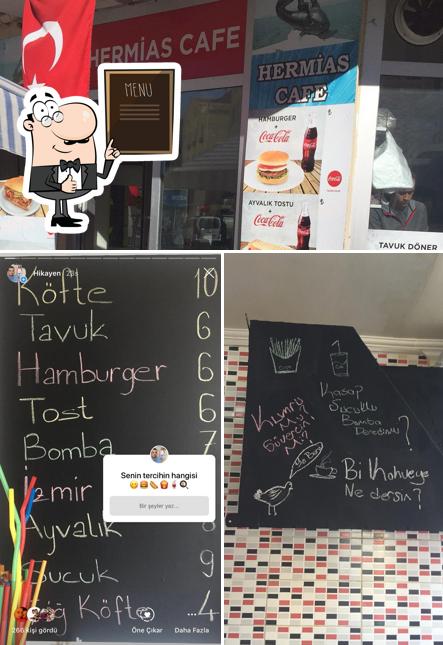 HERMIAS CAFE
MENU
HERMİAS
CAFE
HAMBURGER
+
Coca-Cola
AYVALIK TOSTU
+
Coca-Cola
TAVUK DÖNER
Hikayen 23s
Köfte 10
Tavuk 6
Hamburger 6
Tost 6
Bomba 7
Senin tercihin hangisi
Bir şeyler yaz...
İzmir
Ayvalık 8
Sucuk 9
Çiğ Köfte ...4
266 kişi gördü
Öne Çıkar
Daha Fazla
Kumru
Mu?
Güvercin
Mi?
Kaşar
Sucuklu
Bomba
Dedinmi ?
Bi Kahveye
Ne dersin?